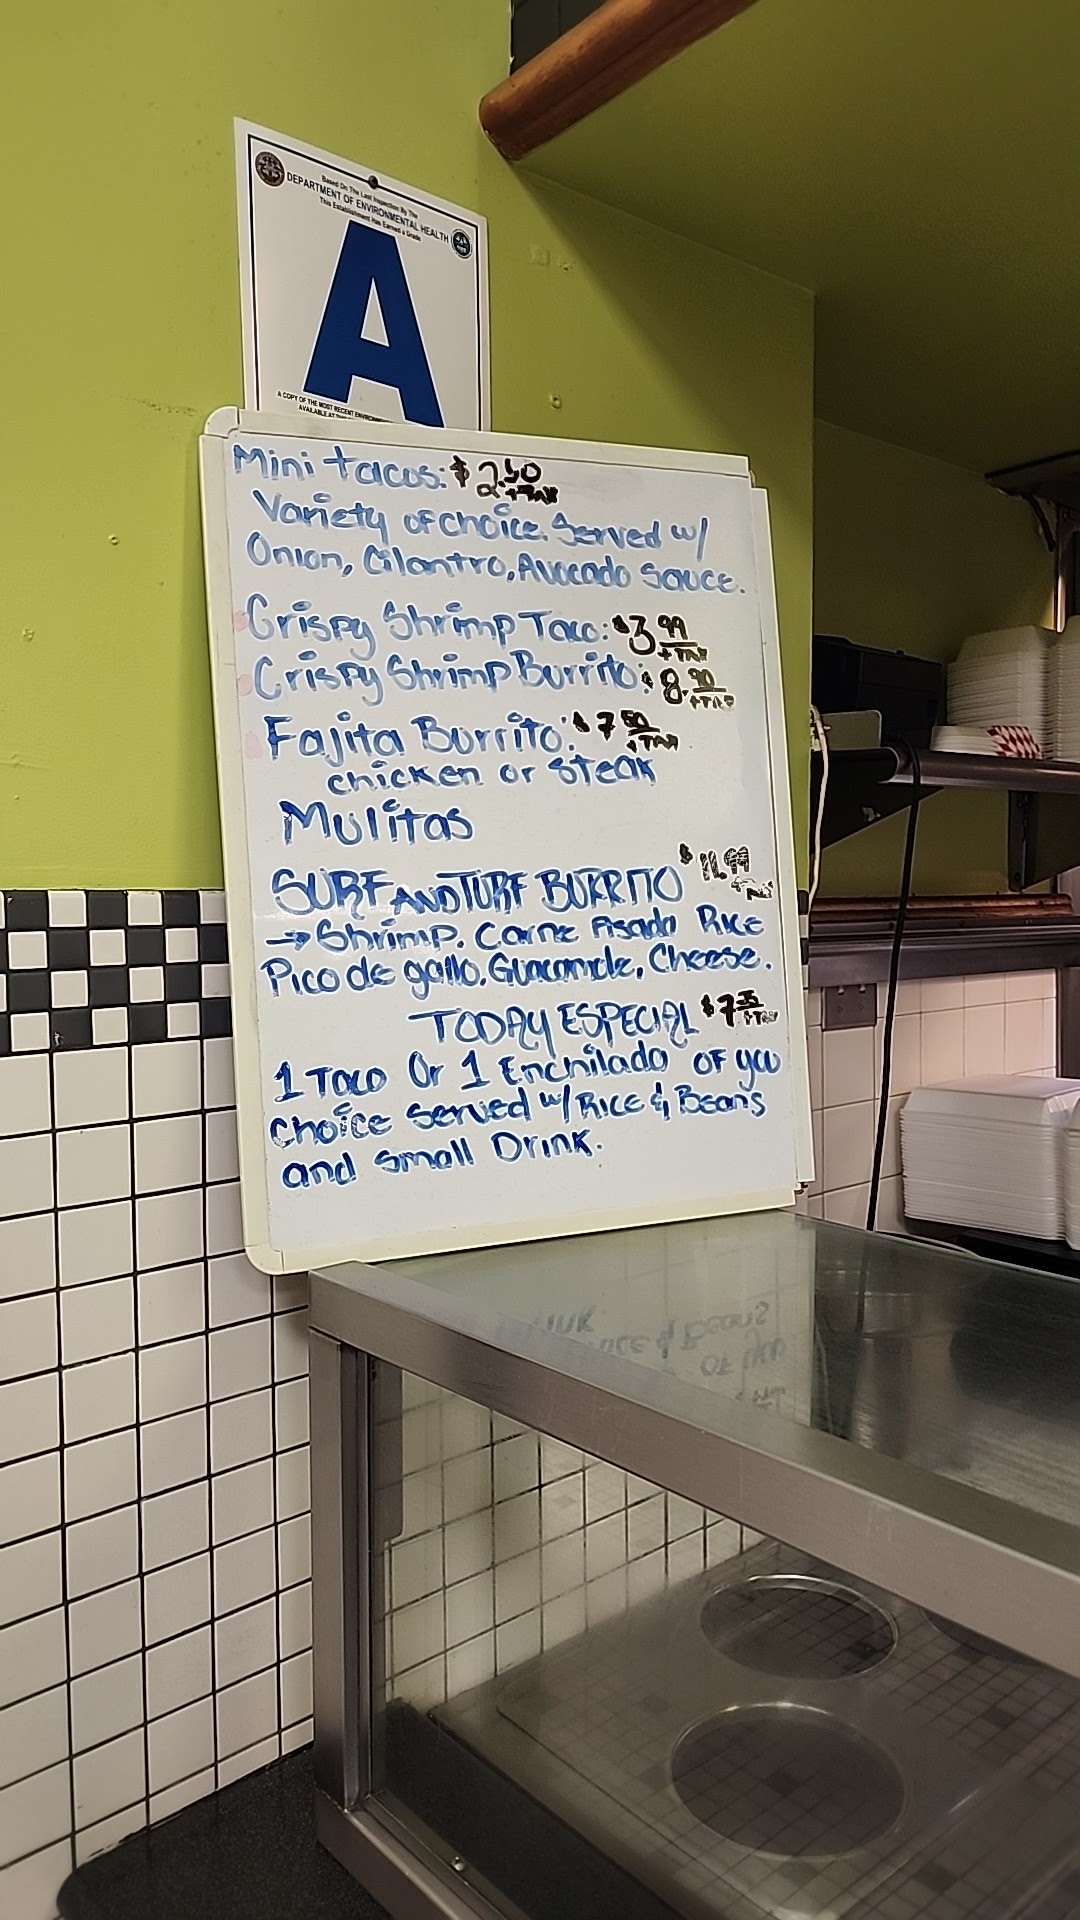 Based On The Last Inspection By The
DEPARTMENT OF ENVIRONMENTAL HEALTH
This Establishment Has Earned a Grade
A
A COPY OF THE MOST RECENT ENVIRONMENTAL
AVAILABLE AT
Mini tacos: $2.50 +TAX
Variety of choice. Served w/
Onion, Cilantro, Avocado Sauce.
Crispy Shrimp Taco: $3 99 +TAX
Crispy Shrimp Burrito: $8.90 +TAX
Fajita Burrito: $7 50 +TAX
chicken or steak
Mulitas
SURF AND TURF BURRITO $11.99 +TAX
→ Shrimp. Carne Asada Rice
Pico de gallo, Guacamole, Cheese.
TODAY ESPECIAL $7 +TAX
1 Taco Or 1 Enchilada OF you
choice served w/ Rice & Beans
and small Drink.